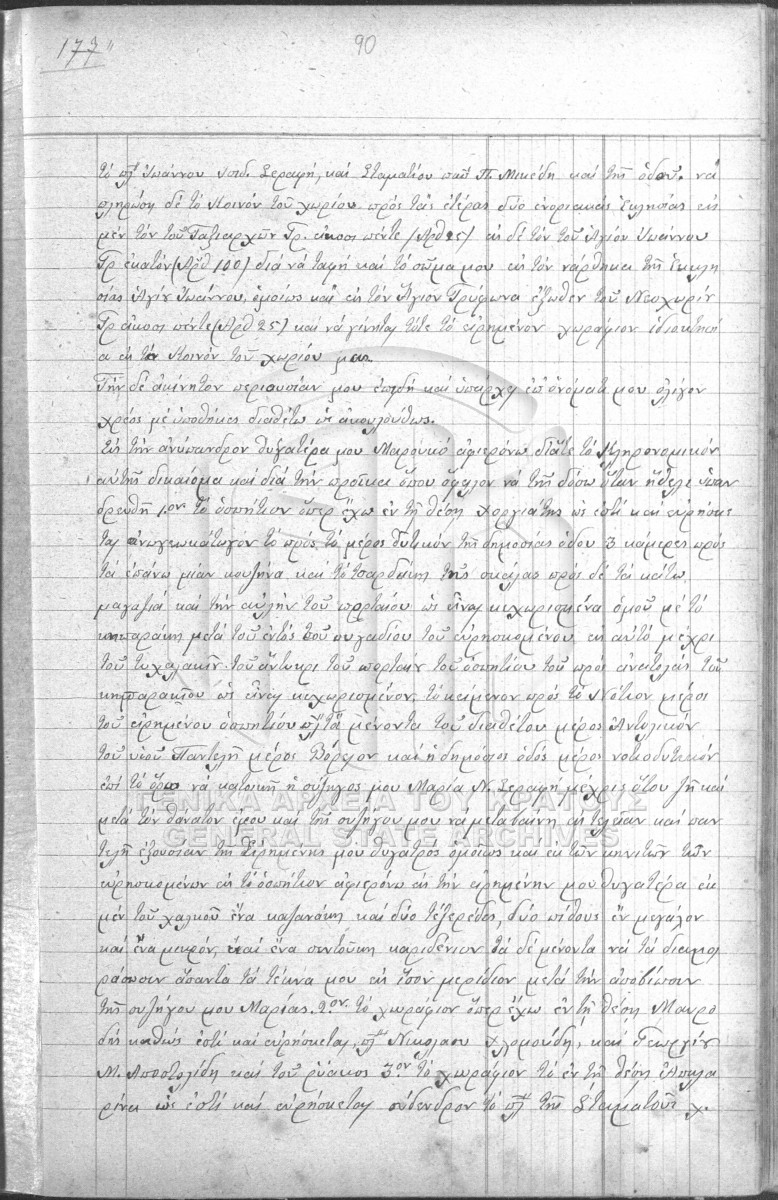 177"
90
τὸ πλ Ἰωάννου Σεραφῆ, καὶ Σταματίου Π. Μικέδη καὶ τῆς ὁδοῦ. νὰ
πληρώσῃ δὲ τὸ Κοινὸν τοῦ χωρίου πρὸς τὰς ἑτέρας δύο ἐνοριακὰς ἐκλησίας εἰς
μὲν τὸν τοῦ Ταξιαρχῶν Γρ. εἴκοσι πέντε /Αρθ 25/ εἰς δὲ τὸν τοῦ Ἁγίου Ἰωάννου
Γρ ἑκατὸν (Αρθ 100) διὰ νὰ ταφῇ καὶ τὸ σῶμα μου εἰς τὸν νάρθηκα τῆς Ἐκκλη
σίας Ἁγίου Ἰωάννου, ὁμοίως καὶ εἰς τὸν Ἅγιον Τρύφωνα ἔξωθεν τοῦ Νεοχωρίου
Γρ εἴκοσι πέντε (Αρθ 25) καὶ νὰ γίνηται τότε τὸ εἰρημένον χωράφιον ἰδιοκτησί
α εἰς τὸν Κοινὸν τοῦ χωρίου μας.
Τὴν δὲ ἀκίνητον περιουσίαν μου ἐπιδὴ καὶ ὑπάρχει ἐπ' ὀνόματί μου ὀλίγον
χρέος μὲ ὑποθήκας διαθέτω ὡς ἀκολούθως.
Εἰς τὴν ἀνύπανδρον θυγατέρα μου Μαρουκὸ ἀφιερόνω διὰ τὸ κληρονομικόν
αὐτῆς δικαίομα καὶ διὰ τὴν προῖκα ὅπου ὄφειλον νὰ τῆς δόσω ὅταν ἤθελε ὑπαν
δρευθῆ 1ον τὸ ὁσπήτιον ὅπερ ἔχω ἐν τῇ θέσῃ Χοργιάτης ὡς ἐστὶ καὶ εὑρήσκε
ται ἀνωγεωκάτωγον τὸ πρὸς τὸ μέρος δυτικὸν τῆς δημοσίας ὁδοῦ 3 κάμερες πρὸς
τὰ ἐπάνω μίαν κουζήνα καὶ τὸ τσαρδάκη τῆς σκάλας πρὸς δὲ τὰ κάτω
μαγαζιὰ καὶ τὴν αὐλὴν τοῦ πορταίου ὡς εἶναι κεχωρισμένα ὁμοῦ μὲ τὸ
κηπαράκη μετὰ τοῦ ἐντὸς τοῦ φυγαδίου τοῦ εὑρησκομένου εἰς αὐτὸ μέχρι
τοῦ τοῦ ἄντικρι τοῦ πορταίου τοῦ ὁσπητίου τοῦ πρὸς ἀνατολὰς τοῦ
κηπαρακίου ὡς εἶναι κεχωρισμένον, τὸ κείμενον πρὸς τὸ Νότιον μέρος
τοῦ εἰρημένου ὁσπητίου πλ τὰ μένοντα τοῦ διαθέτου μέρος Ἀντολικόν
τοῦ υἱοῦ Παντελῆ μέρος Βόρειον καὶ ἡ δημόσιος ὁδὸς μέρος νοτιοδυτικόν
ἐπὶ τὸ ὅρω νὰ κατοικῇ ἡ σύζηγος μου Μαρία Ν. Σεραφῆ μέχρις ὅτου ζῇ καὶ
μετὰ τὸν θάνατον ἐμοῦ καὶ τῆς συζήγου μου νὰ μεταβαίνῃ εἰς τελείαν καὶ παν
τελῆ ἐξουσίαν τῆς εἰρημένης μου θυγατρὸς ὁμοίως καὶ ἐκ τῶν κηνιτῶν τῶν
εὑρησκομένων εἰς τὸ ὁσπήτιον ἀφιερόνω εἰς τὴν εἰρημένην μου θυγατέρα ἐκ
μὲν τοῦ χαλκοῦ ἕνα καζανάκη καὶ δύο τετζερέδες, δύο πίθους ἓν μεγάλον
καὶ ἕνα μικρόν, καὶ ἕνα σεντοῦκη καριδένιον τὰ δὲ μένοντα νὰ τὰ διαμοι
ράσωσιν ἅπαντα τὰ τέκνα μου εἰς ἴσον μερίδιον μετὰ τὴν ἀποβίωσιν
τῆς συζήγου μου Μαρίας. 2ον. τὸ χωράφιον ὅπερ ἔχω ἐν τῇ θέσῃ Μαυρο
δὴς καθὼς ἐστὶ καὶ εὑρήσκεται, πλ Νικολάου Χλομούδη, καὶ Γεωργίου
Μ. Ἀποστολίδη καὶ τοῦ ῥύακος 3ον τὸ χωράφιον τὸ ἐν τῇ θέσῃ
ὡς ἐστὶ καὶ εὑρήσκεται σύδενδρον τὸ πλ τῆς Σταματοῦς χ.
ΓΕΝΙΚΑ ΑΡΧΕΙΑ ΤΟΥ ΚΡΑΤΟΥΣ
GENERAL STATE ARCHIVES